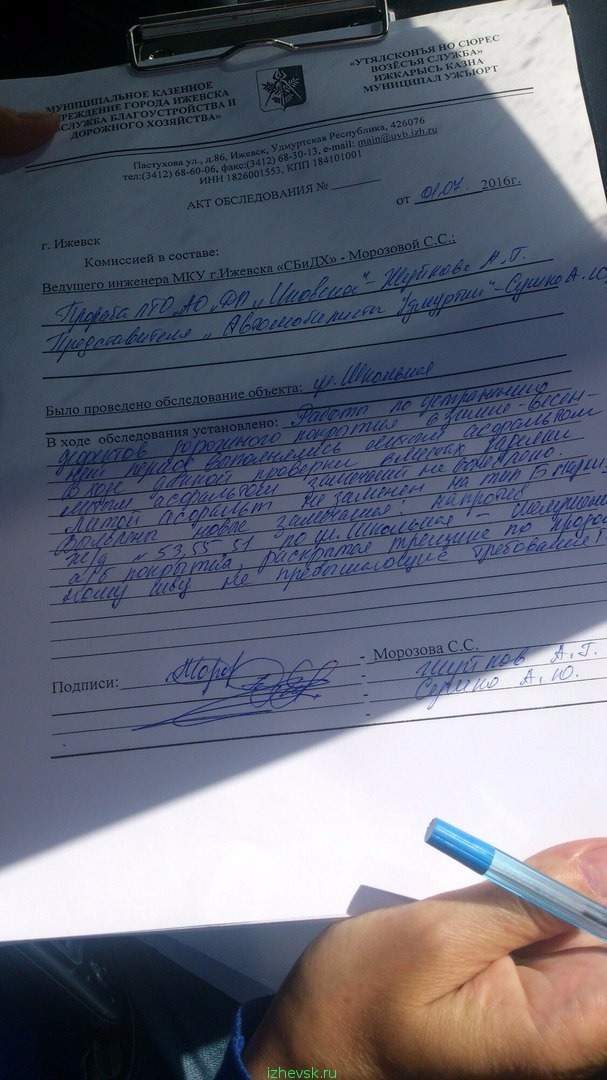 МУНИЦИПАЛЬНОЕ КАЗЕННОЕ
УЧРЕЖДЕНИЕ ГОРОДА ИЖЕВСКА
«СЛУЖБА БЛАГОУСТРОЙСТВА И
ДОРОЖНОГО ХОЗЯЙСТВА»
«УТЯЛСКОНЪЯ НО СЮРЕС
ВОЗЁСЬЯ СЛУЖБА»
ИЖКАРЫСЬ КАЗНА
МУНИЦИПАЛ УЖЪЮРТ
Пастухова ул., д.86, Ижевск, Удмуртская Республика, 426076
тел:(3412) 68-60-06, факс:(3412) 68-30-13, e-mail: main@uvb.izh.ru
ИНН 1826001553, КПП 184101001
АКТ ОБСЛЕДОВАНИЯ №
от 01.07. 2016г.
г. Ижевск
Комиссией в составе:
Ведущего инженера МКУ г.Ижевска «СБиДХ» - Морозовой С.С.;
Прораба ПТО АО „ДП „Ижевское"-
Представителя „Автомобилисты Удмуртии"-
Было проведено обследование объекта: ул. Школьная
В ходе обследования установлено: Работы по устранению
дефектов дорожного покрытия в зимне-весен-
ний период выполнялись литым асфальтом
В ходе данной проверки в местах заделки
литым асфальтом замечаний не выявлено.
Литой асфальт не заменен на тип Б
новые замечания: напротив
ж/д № 53, 55, 51 по ул. Школьная -
а/б покрытия, раскрытая трещина по
шву не превышающие требования
Подписи:
- Морозова С.С.
А.Г.
А.Ю.
izhevsk.ru